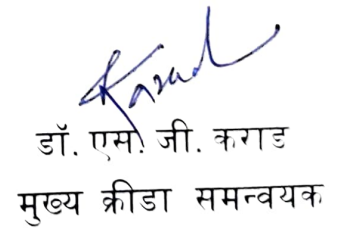 Karad
डॉ. एस. जी. कराड
मुख्य क्रीडा समन्वयक